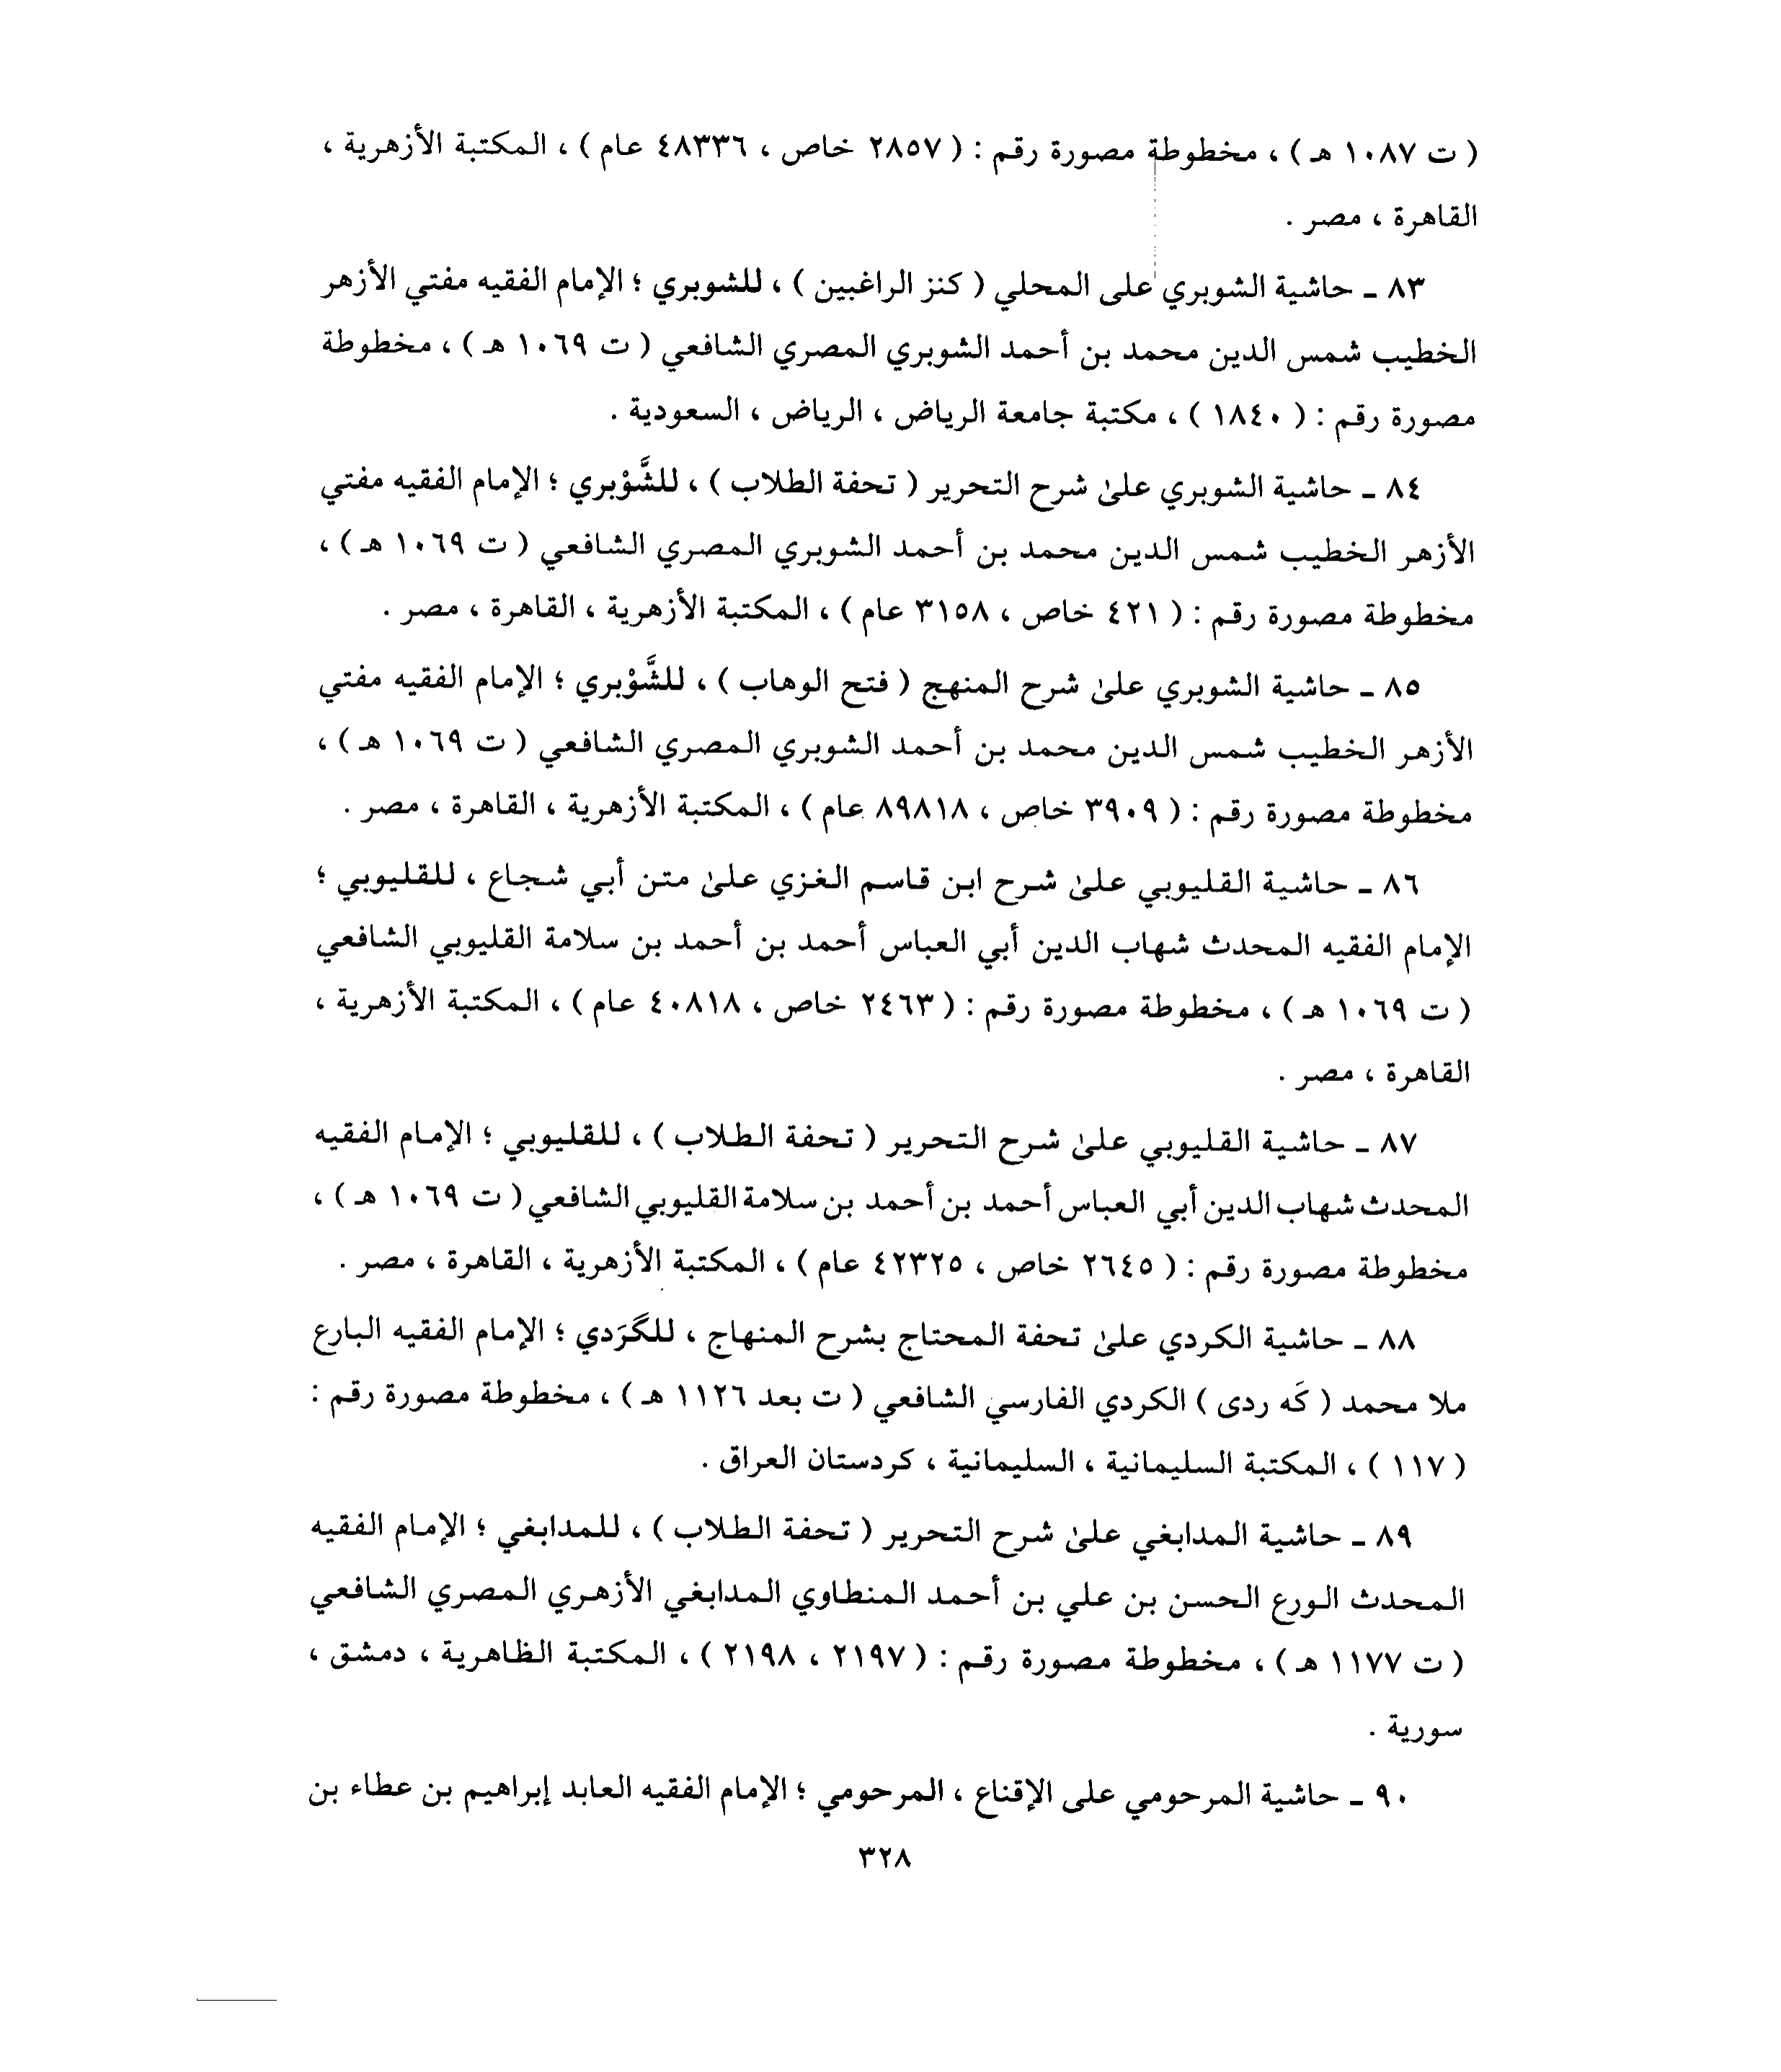 ( ت ١٠٨٧ هـ ) ، مخطوطة مصورة رقم : ( ٢٨٥٧ خاص ، ٤٨٣٣٦ عام ) ، المكتبة الأزهرية ،
القاهرة ، مصر .
٨٣ ـ حاشية الشوبري على المحلي ( كنز الراغبين ) ، للشوبري ؛ الإمام الفقيه مفتي الأزهر
الخطيب شمس الدين محمد بن أحمد الشوبري المصري الشافعي ( ت ١٠٦٩ هـ ) ، مخطوطة
مصورة رقم : ( ١٨٤٠ ) ، مكتبة جامعة الرياض ، الرياض ، السعودية .
٨٤ ـ حاشية الشوبري علىٰ شرح التحرير ( تحفة الطلاب ) ، للشَّوْبري ؛ الإمام الفقيه مفتي
الأزهر الخطيب شمس الدين محمد بن أحمد الشوبري المصري الشافعي ( ت ١٠٦٩ هـ ) ،
مخطوطة مصورة رقم : ( ٤٢١ خاص ، ٣١٥٨ عام ) ، المكتبة الأزهرية ، القاهرة ، مصر .
٨٥ ـ حاشية الشوبري علىٰ شرح المنهج ( فتح الوهاب ) ، للشَّوْبري ؛ الإمام الفقيه مفتي
الأزهر الخطيب شمس الدين محمد بن أحمد الشوبري المصري الشافعي ( ت ١٠٦٩ هـ ) ،
مخطوطة مصورة رقم : ( ٣٩٠٩ خاص ، ٨٩٨١٨ عام ) ، المكتبة الأزهرية ، القاهرة ، مصر .
٨٦ ـ حاشية القليوبي علىٰ شرح ابن قاسم الغزي علىٰ متن أبي شجاع ، للقليوبي ؛
الإمام الفقيه المحدث شهاب الدين أبي العباس أحمد بن أحمد بن سلامة القليوبي الشافعي
( ت ١٠٦٩ هـ ) ، مخطوطة مصورة رقم : ( ٢٤٦٣ خاص ، ٤٠٨١٨ عام ) ، المكتبة الأزهرية ،
القاهرة ، مصر .
٨٧ ـ حاشية القليوبي علىٰ شرح التحرير ( تحفة الطلاب ) ، للقليوبي ؛ الإمام الفقيه
المحدث شهاب الدين أبي العباس أحمد بن أحمد بن سلامة القليوبي الشافعي ( ت ١٠٦٩ هـ ) ،
مخطوطة مصورة رقم : ( ٢٦٤٥ خاص ، ٤٢٣٢٥ عام ) ، المكتبة الأزهرية ، القاهرة ، مصر .
٨٨ ـ حاشية الكردي علىٰ تحفة المحتاج بشرح المنهاج ، للگَرَدي ؛ الإمام الفقيه البارع
ملا محمد ( كَه ردى ) الكردي الفارسي الشافعي ( ت بعد ١١٢٦ هـ ) ، مخطوطة مصورة رقم :
( ١١٧ ) ، المكتبة السليمانية ، السليمانية ، كردستان العراق .
٨٩ ـ حاشية المدابغي علىٰ شرح التحرير ( تحفة الطلاب ) ، للمدابغي ؛ الإمام الفقيه
المحدث الورع الحسن بن علي بن أحمد المنطاوي المدابغي الأزهري المصري الشافعي
( ت ١١٧٧ هـ ) ، مخطوطة مصورة رقم : ( ٢١٩٧ ، ٢١٩٨ ) ، المكتبة الظاهرية ، دمشق ،
سورية .
٩٠ ـ حاشية المرحومي على الإقناع ، المرحومي ؛ الإمام الفقيه العابد إبراهيم بن عطاء بن
٣٢٨